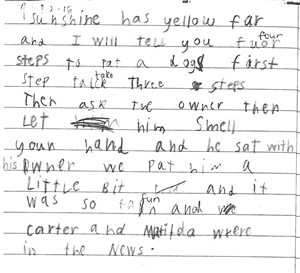 sunshine has yellow far
and I will tell you four
steps to pat a dog farst
step take Three steps
Then ask the owner then
Let him Smell
your hand and he sat with
his owner we pat him a
Little Bit and it
was so fun and we
carter and Matilda where
in the News.